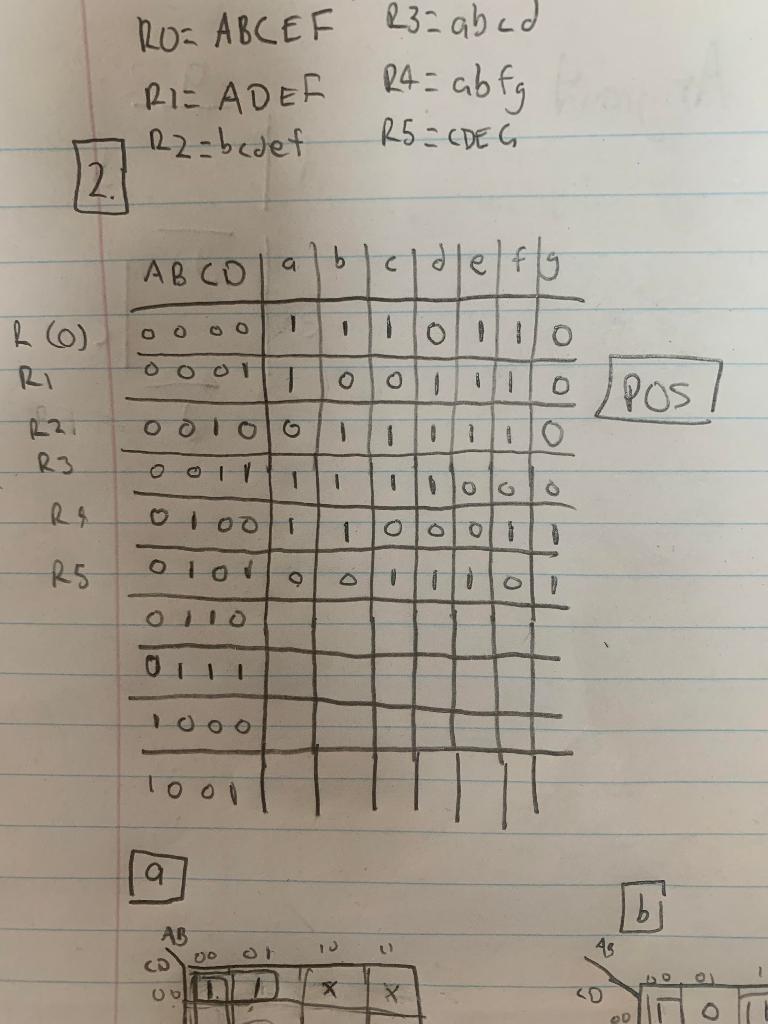 R0= ABCEF R3= abcd
R1= ADEF R4= abfg
R2=bcdef R5=CDEG
2.
A B C D a b c d e f g
R(0) 0 0 0 0 1 1 1 0 1 1 0
R1 0 0 0 1 1 0 0 1 1 1 0
POS
R2 0 0 1 0 0 1 1 1 1 1 0
R3 0 0 1 1 1 1 1 1 0 0 0
R4 0 1 0 0 1 1 0 0 0 1 1
R5 0 1 0 1 0 0 1 1 1 0 1
0 1 1 0
0 1 1 1
1 0 0 0
1 0 0 1
a b
AB AB
CD 00 01 10 11 CD 00 01 1
00 1 1 x x 00 1 0